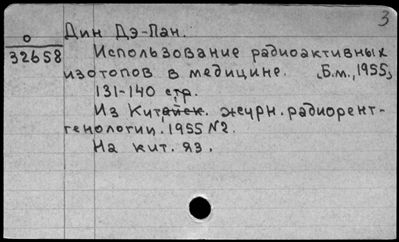 3
Дин Дэ-Пан.
о
32658
Использование радиоактивных
изотопов в медицине. [Б.м., 1955]
131-140 стр.
Из Китайск. журн. радиорент-
генологии. 1955 N2.
На кит. яз.